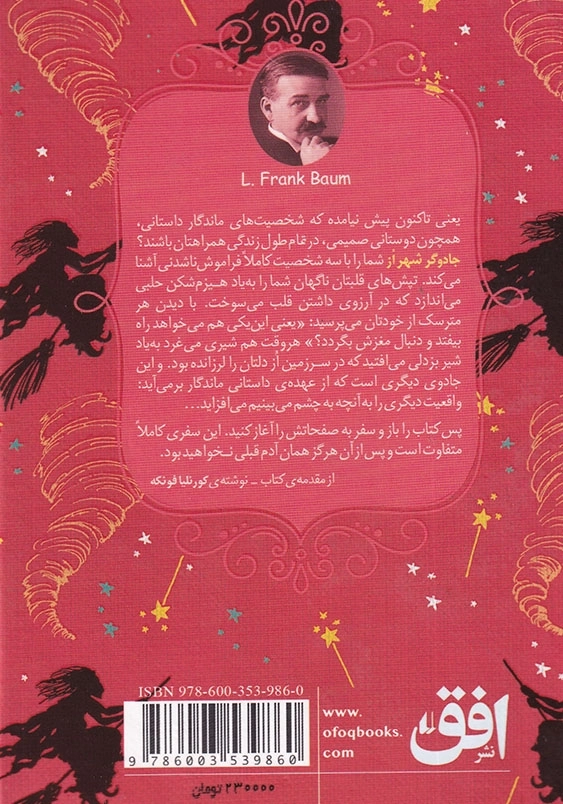 L. Frank Baum
یعنی تاکنون پیش نیامده که شخصیت‌های ماندگار داستانی،
همچون دوستانی صمیمی، در تمام طول زندگی همراهتان باشند؟
جادوگر شهر اُز شما را با سه شخصیت کاملاً فراموش ناشدنی آشنا
می‌کند. تپش‌های قلبتان ناگهان شما را به‌یاد هیزم‌شکن حلبی
می‌اندازد که در آرزوی داشتن قلب می‌سوخت. با دیدن هر
مترسک از خودتان می‌پرسید: «یعنی این‌یکی هم می‌خواهد راه
بیفتد و دنبال مغزش بگردد؟» هروقت هم شیری می‌غرد به‌یاد
شیر بزدلی می‌افتید که در سرزمین اُز دلتان را لرزانده بود. و این
جادوی دیگری است که از عهده‌ی داستانی ماندگار برمی‌آید:
واقعیت دیگری را به آنچه به چشم می‌بینیم می‌افزاید...
پس کتاب را باز و سفر به صفحاتش را آغاز کنید. این سفری کاملاً
متفاوت است و پس از آن هرگز همان آدم قبلی نخواهید بود.
از مقدمه‌ی کتاب ـ نوشته‌ی کورنلیا فونکه
ISBN 978-600-353-986-0
9 786003 539860
۲۳۰۰۰۰ تومان
www.
ofoqbooks.
com
افق
نشر